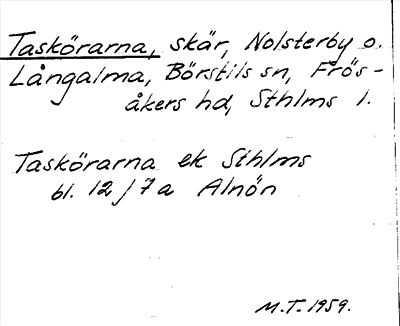 Taskörarna, skär, Nolsterby o.
Långalma, Börstils sn, Frös-
åkers hd, Sthlms l.
Taskörarna ek Sthlms
bl. 12 / 7 a Alnön
M.T. 1959.